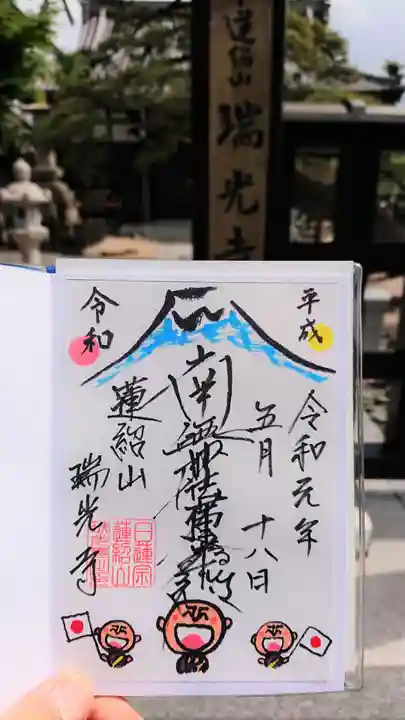 蓮紹山
瑞光寺
平成
令和
令和元年
五月十八日
南無妙法蓮華経
蓮紹山
瑞光寺
日蓮宗
蓮紹山